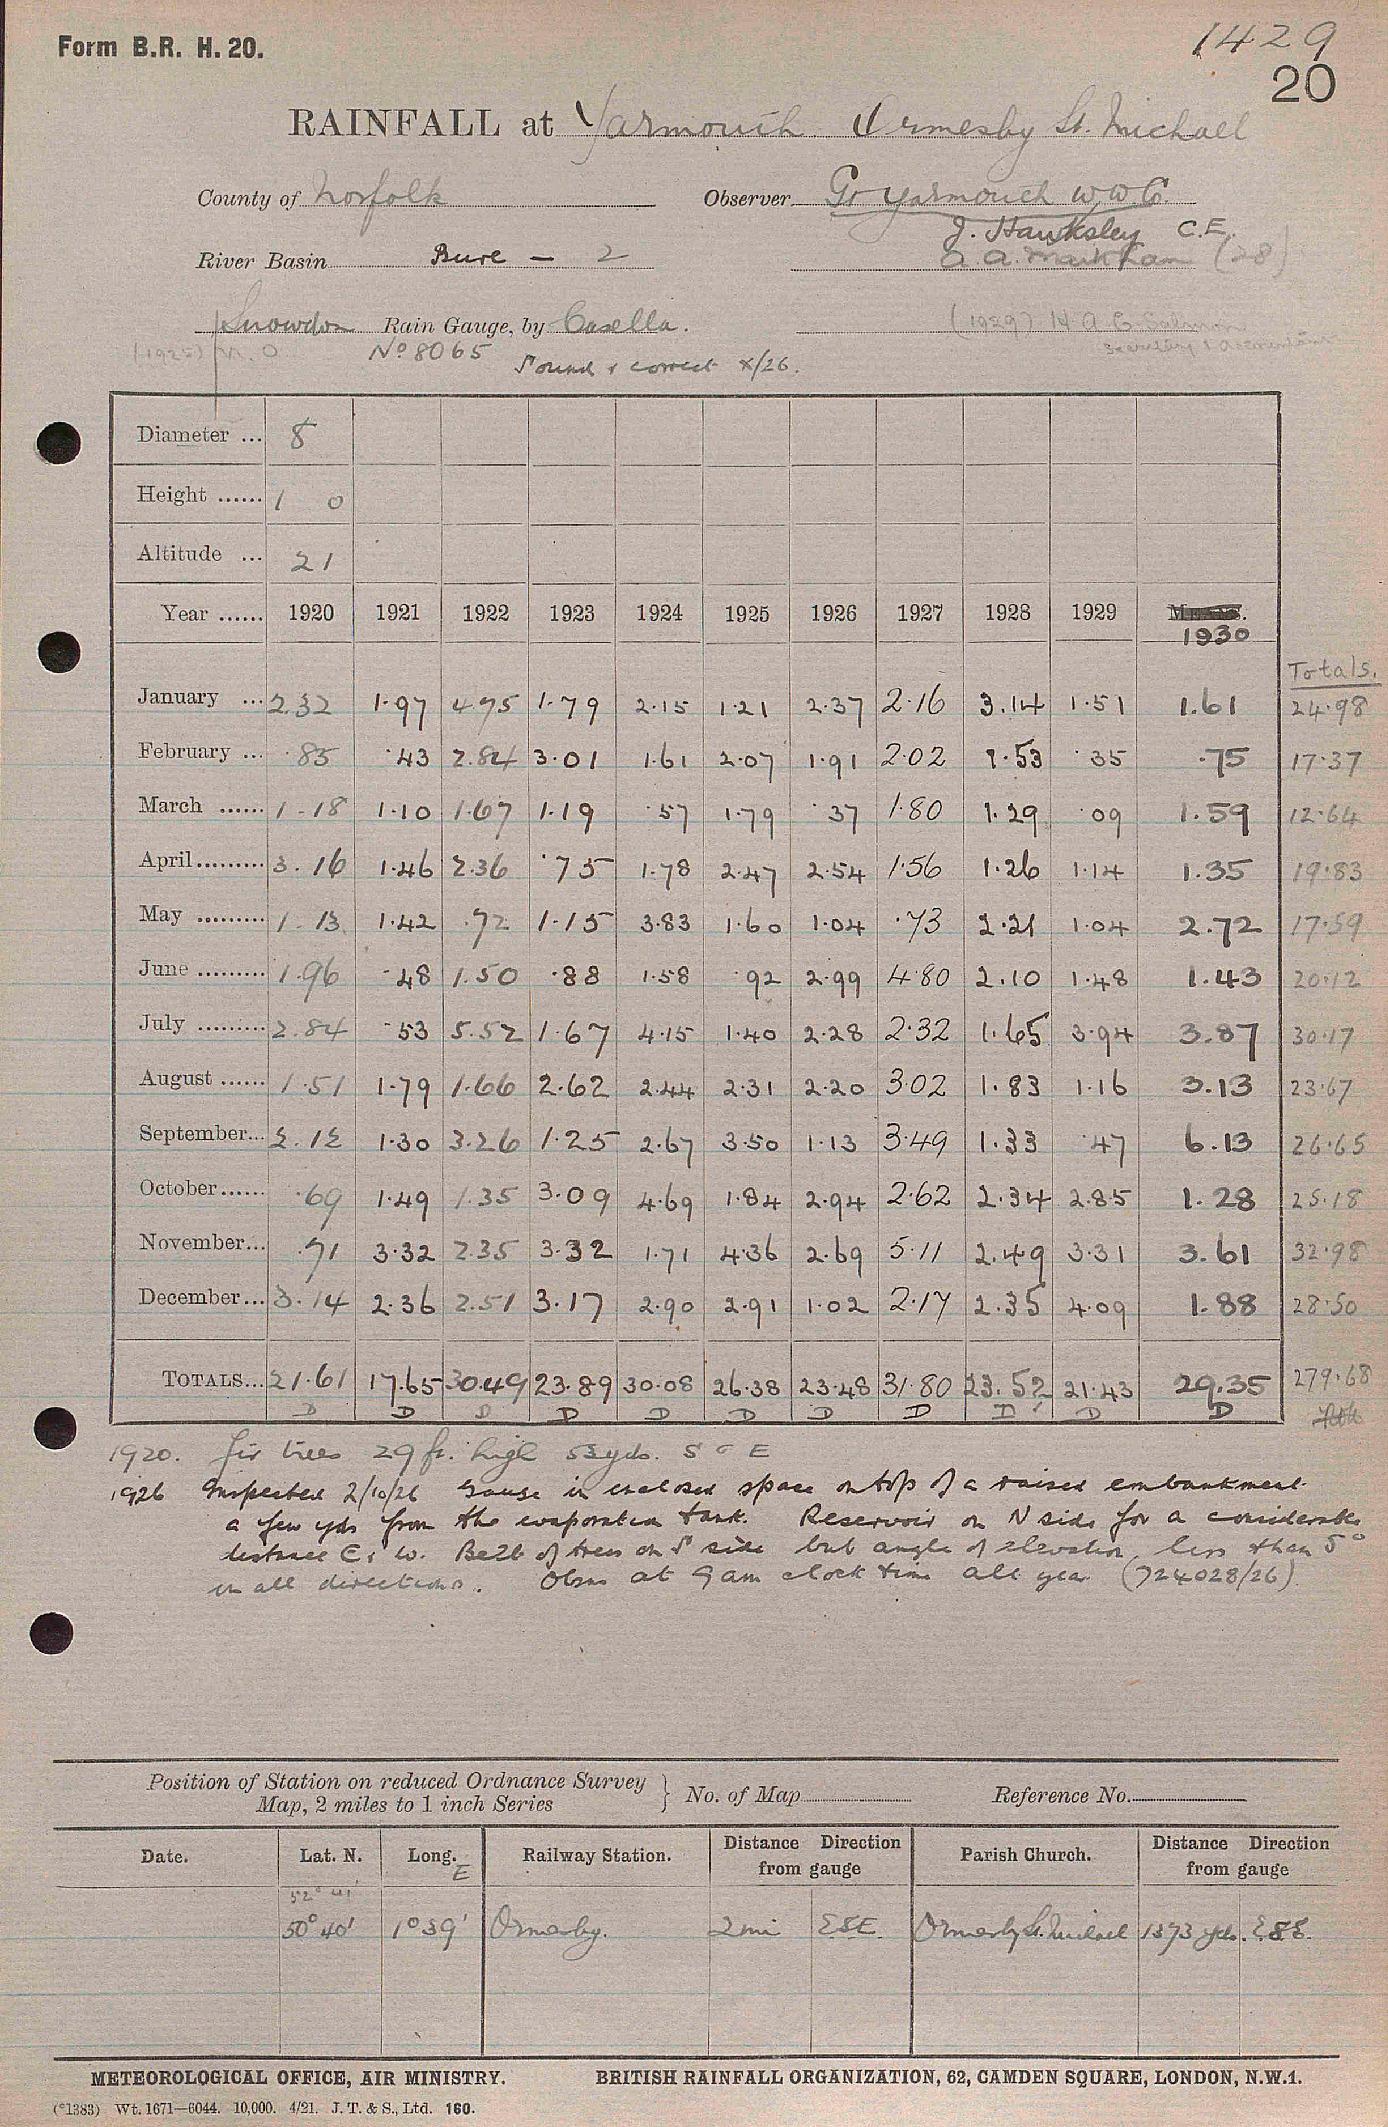 Form B.R. H. 20.
1429
20
RAINFALL at Yarmouth Ormesby St. Michael
County of Norfolk Observer Gt Yarmouth W.W.Co.
J. Hawksley C.E.
River Basin Bure — 2 A. A. Markham (28)
Snowdon Rain Gauge, by Casella. (1929) H A G Salmon
(1925) M.O No 8065 Secretary & Accountant
Sound & correct X/26.
Diameter ... 8
Height ...... 1 0
Altitude ... 21
Year ...... 1920 1921 1922 1923 1924 1925 1926 1927 1928 1929 1930
Totals.
January ... 2.32 1.97 4.75 1.79 2.15 1.21 2.37 2.16 3.14 1.51 1.61 24.98
February ... .85 .43 2.84 3.01 1.61 2.07 1.91 2.02 1.53 .35 .75 17.37
March ...... 1.18 1.10 1.67 1.19 .57 1.79 .37 1.80 1.29 .09 1.59 12.64
April ......... 3.16 1.46 2.36 .75 1.78 2.47 2.54 1.56 1.26 1.14 1.35 19.83
May ......... 1.13 1.42 .72 1.15 3.83 1.60 1.04 .73 2.21 1.04 2.72 17.59
June ......... 1.96 .48 1.50 .88 1.58 .92 2.99 4.80 2.10 1.48 1.43 20.12
July ......... 2.84 .53 5.52 1.67 4.15 1.40 2.28 2.32 1.65 3.94 3.87 30.17
August ...... 1.51 1.79 1.66 2.62 2.44 2.31 2.20 3.02 1.83 1.16 3.13 23.67
September... 2.12 1.30 3.26 1.25 2.67 3.50 1.13 3.49 1.33 .47 6.13 26.65
October...... .69 1.49 1.35 3.09 4.69 1.84 2.94 2.62 2.34 2.85 1.28 25.18
November... .71 3.32 2.35 3.32 1.71 4.36 2.69 5.11 2.49 3.31 3.61 32.98
December... 3.14 2.36 2.51 3.17 2.90 2.91 1.02 2.17 2.35 4.09 1.88 28.50
TOTALS... 21.61 17.65 30.49 23.89 30.08 26.38 23.48 31.80 23.52 21.43 29.35 279.68
D D D D D D D D D D D
1920. fir trees 29 ft. high 53 yds. S of E
1926 Inspected 2/10/26 Gauge in enclosed space on top of a raised embankment
a few yds from the evaporation tank. Reservoir on N side for a considerable
distance E & W. Belt of trees on S side but angle of elevation less than 5°
in all directions. Obsns at 9am clock time all year (724028/26)
Position of Station on reduced Ordnance Survey
Map, 2 miles to 1 inch Series
No. of Map Reference No.
Date. Lat. N. Long. E Railway Station. Distance Direction from gauge Parish Church. Distance Direction from gauge
52° 41'
50° 40' 1° 39' Ormesby. 2 mi ESE Ormesby St. Michael 1373 yds. ESE.
METEOROLOGICAL OFFICE, AIR MINISTRY. BRITISH RAINFALL ORGANIZATION, 62, CAMDEN SQUARE, LONDON, N.W.1.
(*1383) Wt. 1671—6044. 10,000. 4/21. J. T. & S., Ltd. 160.